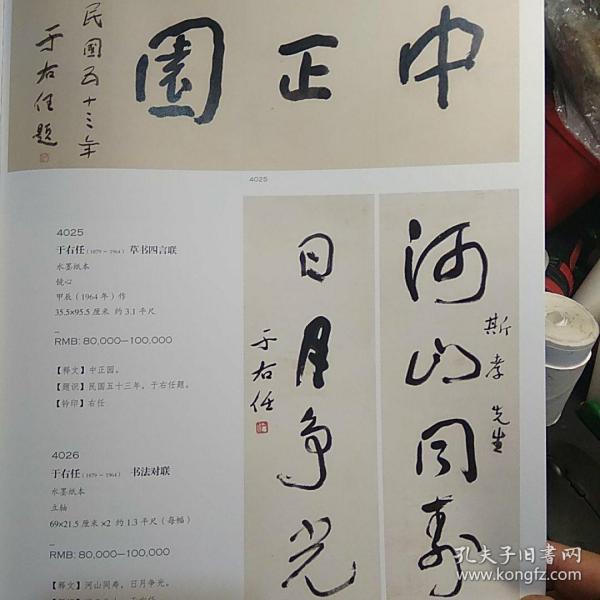 中正園
民國五十三年
于右任題
4025
4025
于右任（1879－1964） 草书四言联
水墨纸本
镜心
甲辰（1964 年）作
35.5×95.5 厘米 约 3.1 平尺
RMB: 80,000—100,000
【释文】中正园。
【题识】民国五十三年，于右任题。
【钤印】右任
4026
于右任（1879－1964） 书法对联
水墨纸本
立轴
69×21.5 厘米 ×2 约 1.3 平尺（每幅）
RMB: 80,000—100,000
【释文】河山同寿，日月争光。
河山同壽
斯孝先生
日月争光
于右任
孔夫子旧书网
www.kongfz.com